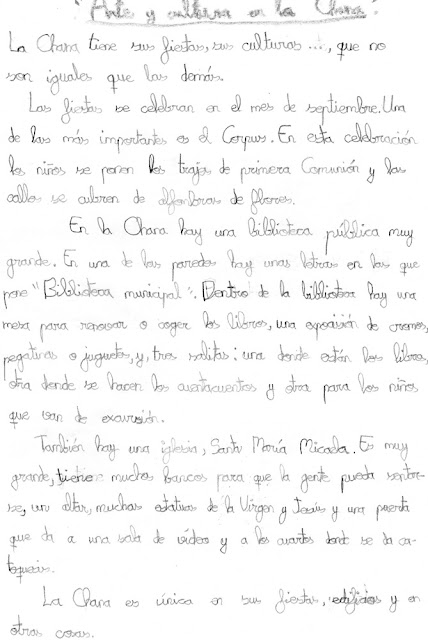 "Arte y cultura en la Chana".
La Chana tiene sus fiestas, sus culturas ..., que no
son iguales que las demás.
Las fiestas se celebran en el mes de septiembre. Una
de las más importantes es el Corpus. En esta celebración
los niños se ponen los trajes de primera Comunión y las
calles se cubren de alfombras de flores.
En la Chana hay una biblioteca pública muy
grande. En una de las paredes hay unas letras en las que
pone "Biblioteca municipal". Dentro de la biblioteca hay una
mesa para renovar o coger los libros, una exposición de cromos,
pegatinas o juguetes, y, tres salitas: una donde están los libros,
otra donde se hacen los cuentacuentos y otra para los niños
que van de excursión.
También hay una iglesia, Santa María Micaela. Es muy
grande, tiene muchos bancos para que la gente pueda sentar-
se, un altar, muchas estatuas de la Virgen y Jesús y una puerta
que da a una sala de vídeo y a los cuartos dond se da ca-
tequesis.
La Chana es única en sus fiestas, edificios y en
otras cosas.